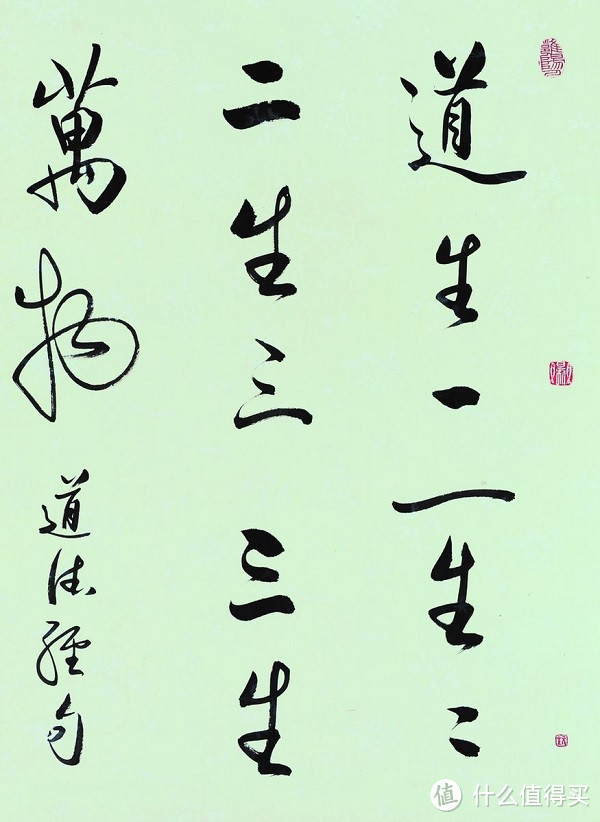 道生一一生二
二生三三生
萬物
道德經句
值 什么值得买